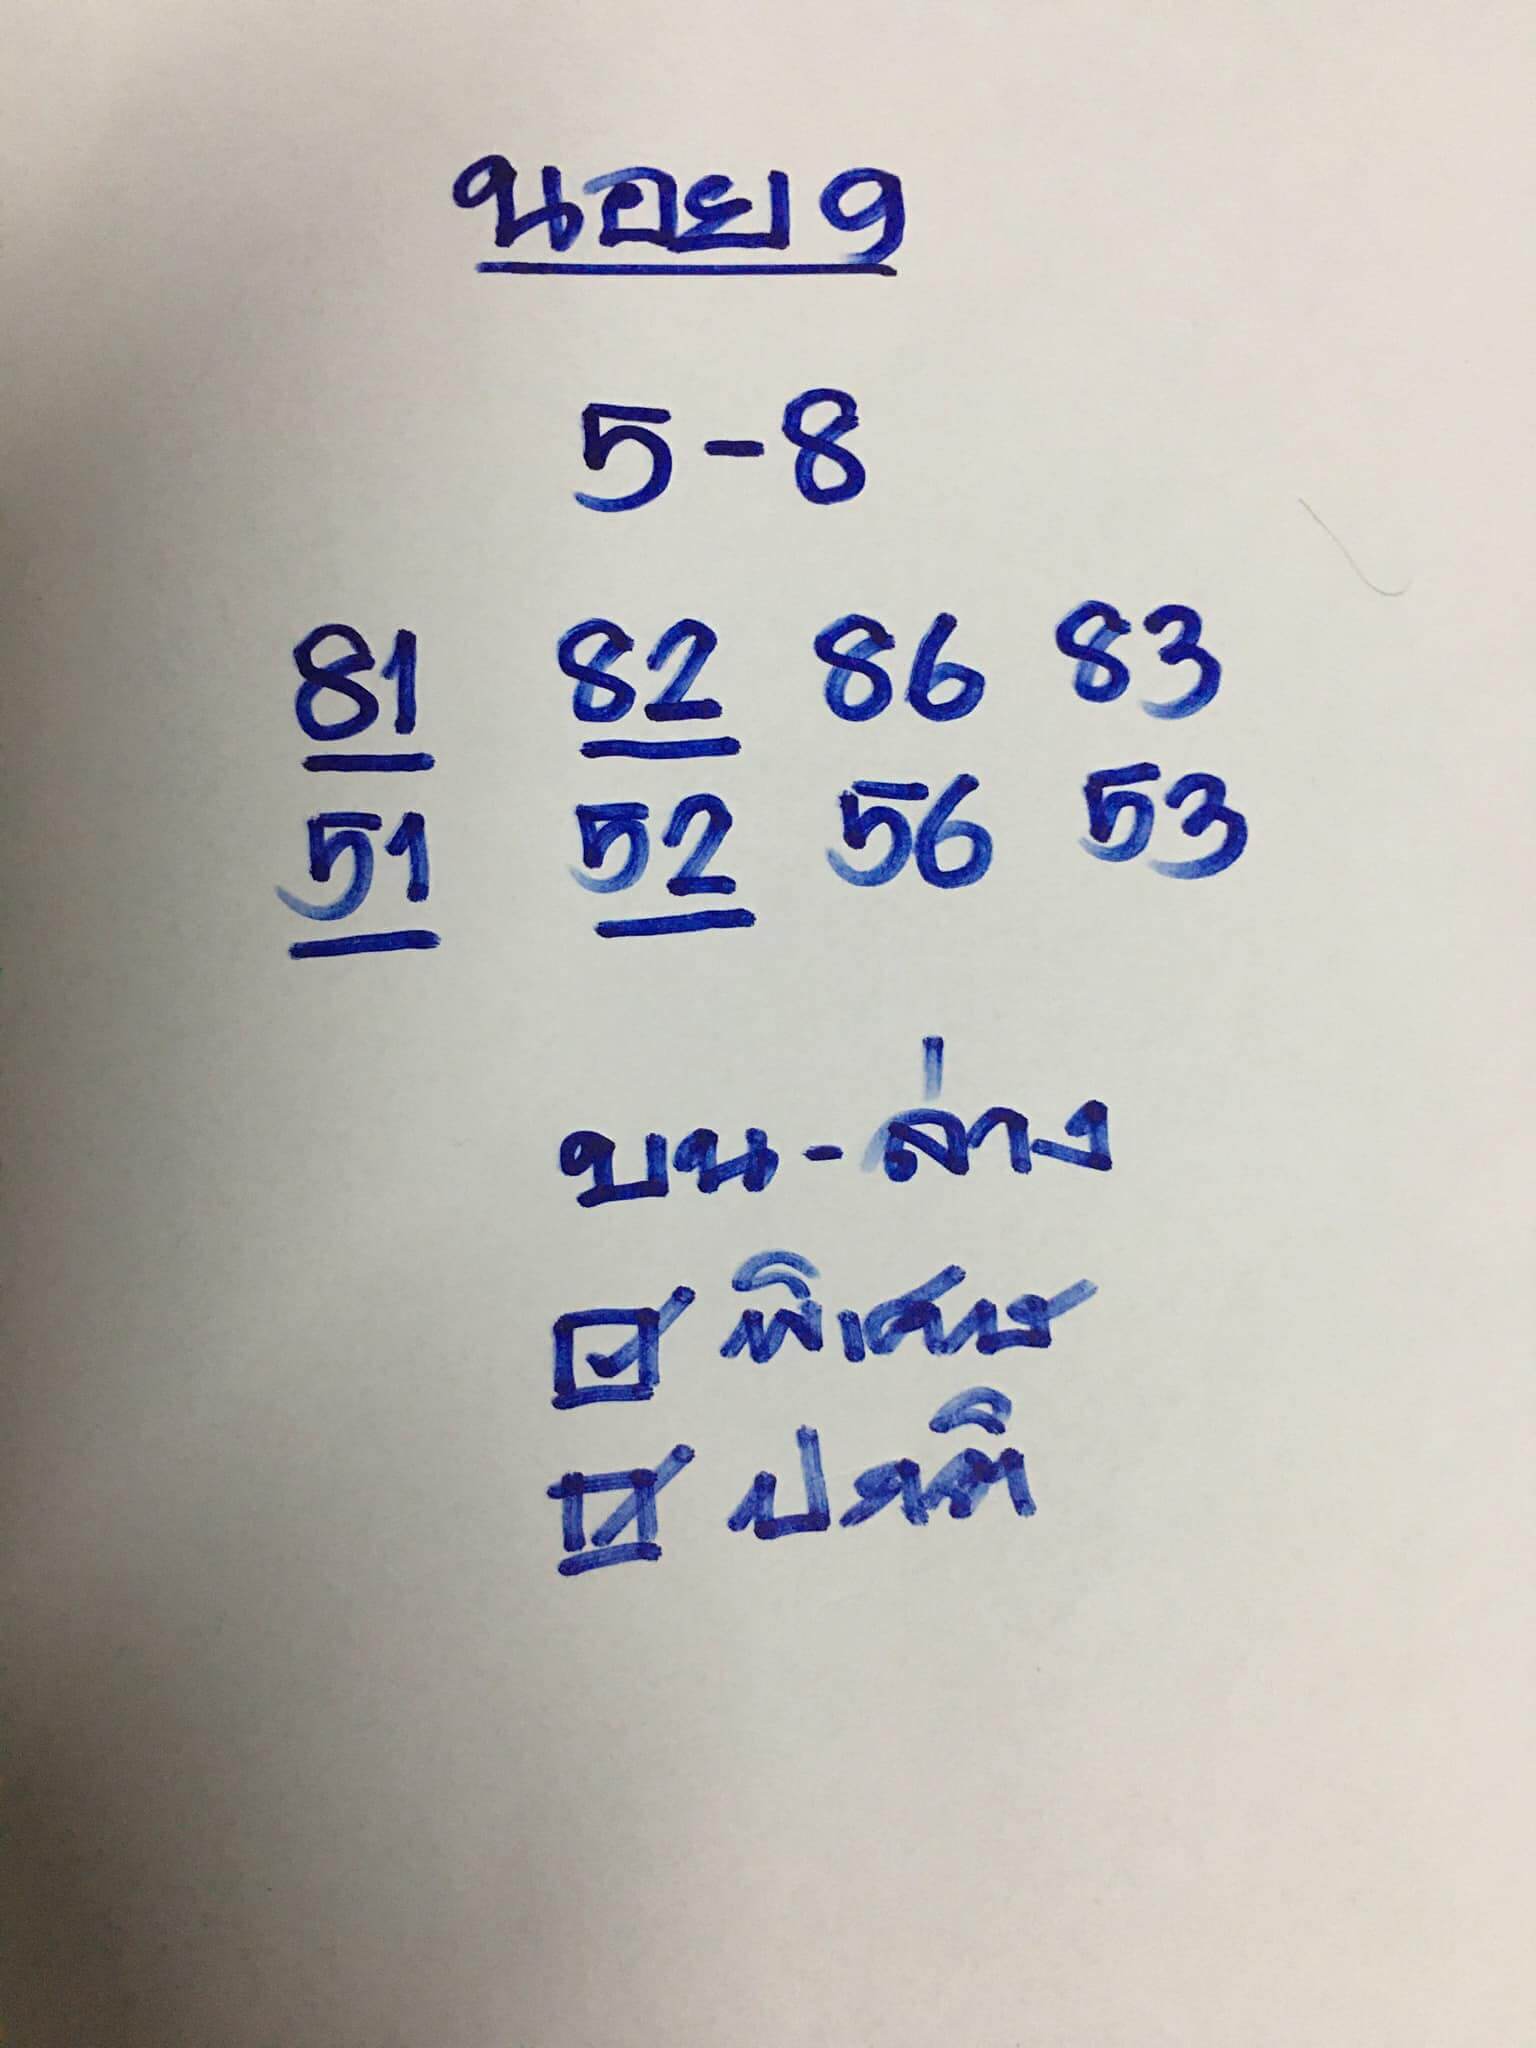 นอย 9
5-8
81 82 86 83
51 52 56 53
บน-ล่าง
☑ พิเศษ
☑ ปกติ